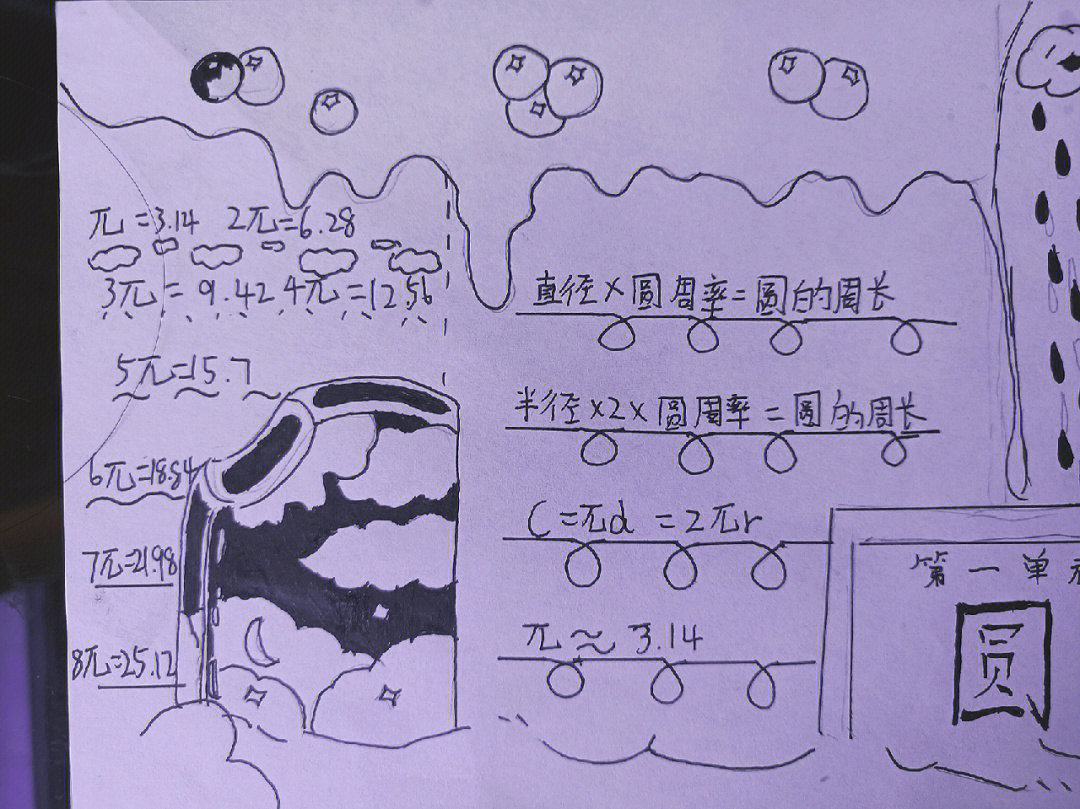 π=3.14 2π=6.28
3π=9.42 4π=12.56
5π=15.7
6π=18.84
7π=21.98
8π=25.12
直径×圆周率=圆的周长
半径×2×圆周率=圆的周长
C=πd=2πr
π≈3.14
第一单元
圆